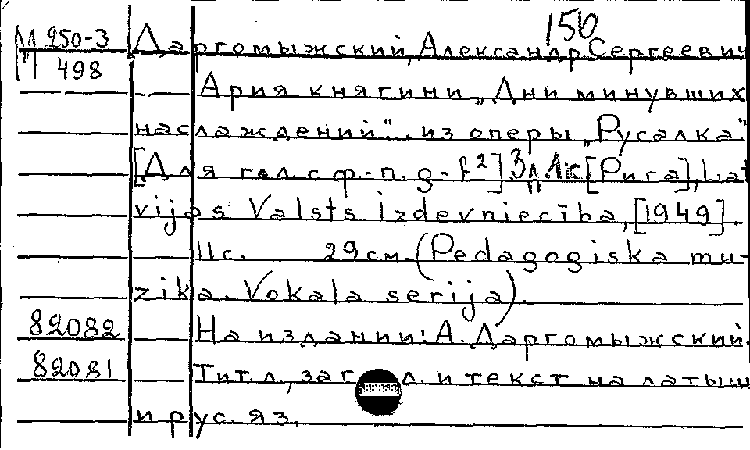 150
М 950-3 Даргомыжский, Александр Сергеевич
П 498
Ария княгини „Дни минувших
наслаждений" из оперы „Русалка"
[Для гол. с ф.-п. g-f²] [Рига], Lat
vijas Valsts Izdevniecība, [1949].
11с. 29см. (Pedagogiska mu-
zika. Vokala serija).
82082 На издании: А. Даргомыжский.
82081 Тит. л., заг л. и текст на латыш
и рус. яз.